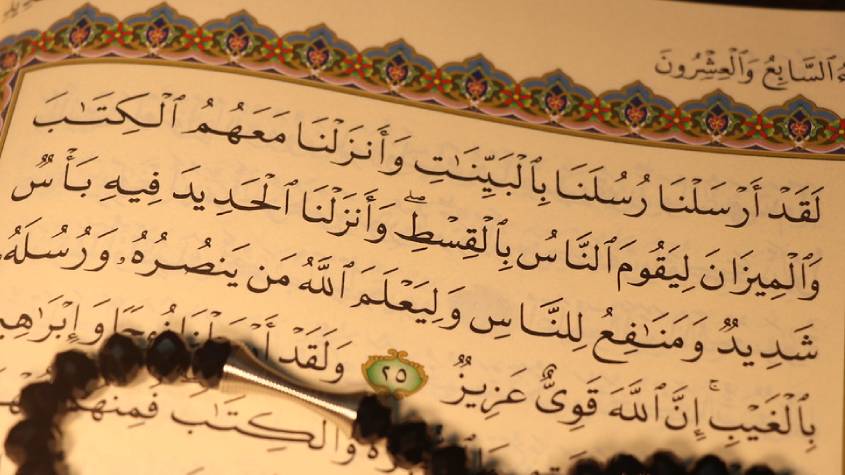 ٱلسَّابِعُ وَٱلْعِشْرُونَ
لَقَدْ أَرْسَلْنَا رُسُلَنَا بِٱلْبَيِّنَـٰتِ وَأَنزَلْنَا مَعَهُمُ ٱلْكِتَـٰبَ
وَٱلْمِيزَانَ لِيَقُومَ ٱلنَّاسُ بِٱلْقِسْطِۖ وَأَنزَلْنَا ٱلْحَدِيدَ فِيهِ بَأْسٌ
شَدِيدٌ وَمَنَـٰفِعُ لِلنَّاسِ وَلِيَعْلَمَ ٱللَّهُ مَن يَنصُرُهُۥ وَرُسُلَهُۥ
بِٱلْغَيْبِۚ إِنَّ ٱللَّهَ قَوِىٌّ عَزِيزٌ ٢٥ وَلَقَدْ نُوحًا
وَٱلْكِتَـٰبَ فَمِنْهُم